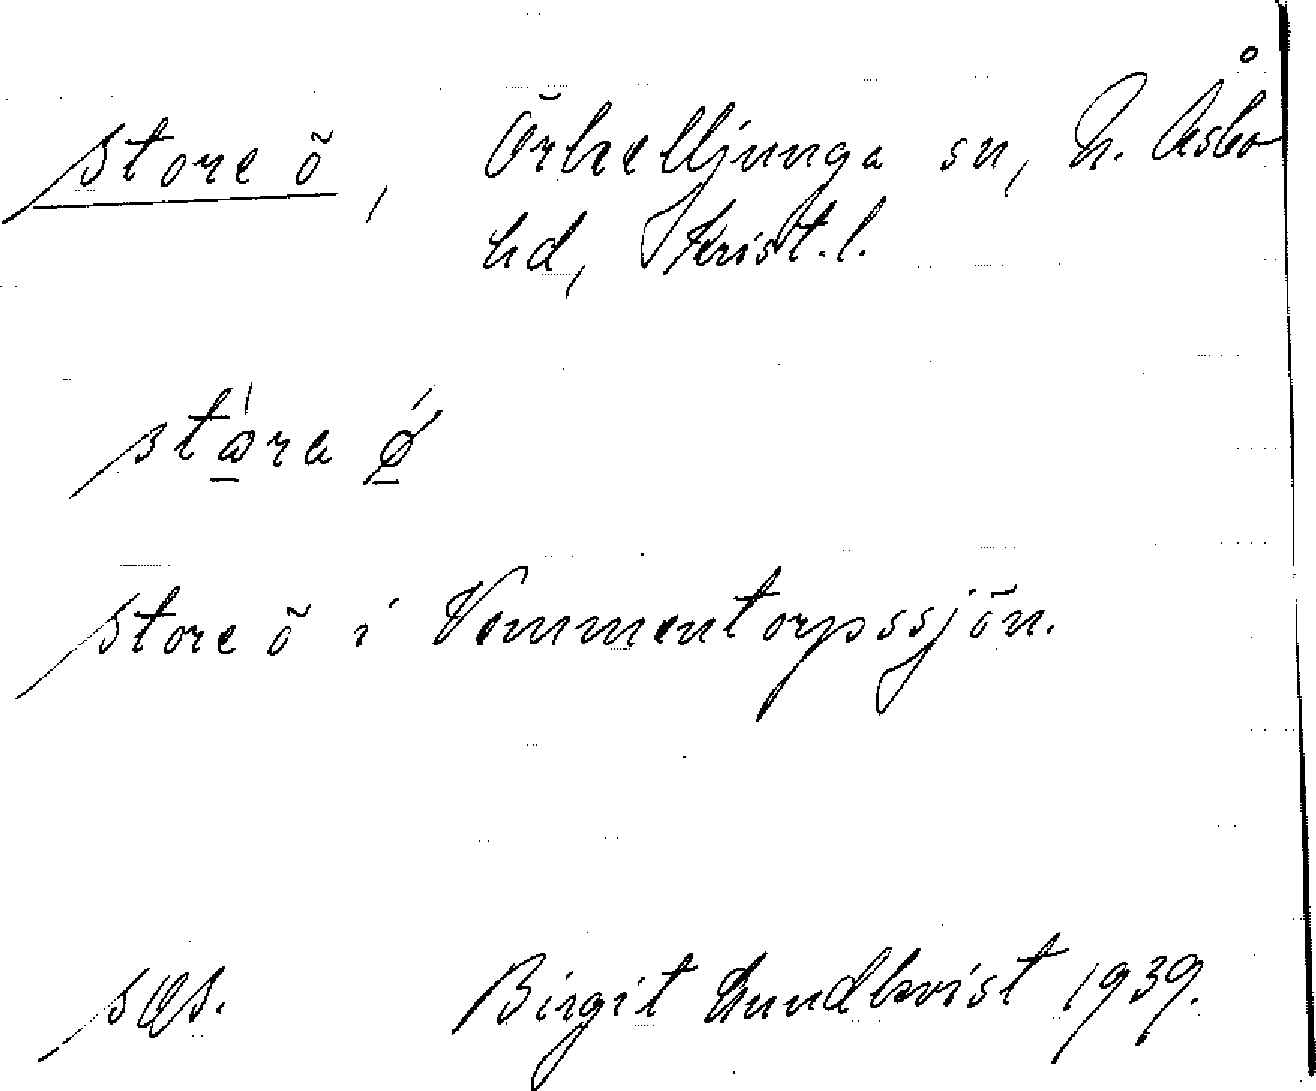 store ö, Örkelljunga sn, N. Åsbo
hd, Krist.l.
stora ö
store ö i Vemmentorpssjön.
Birgit Lundkvist 1939.